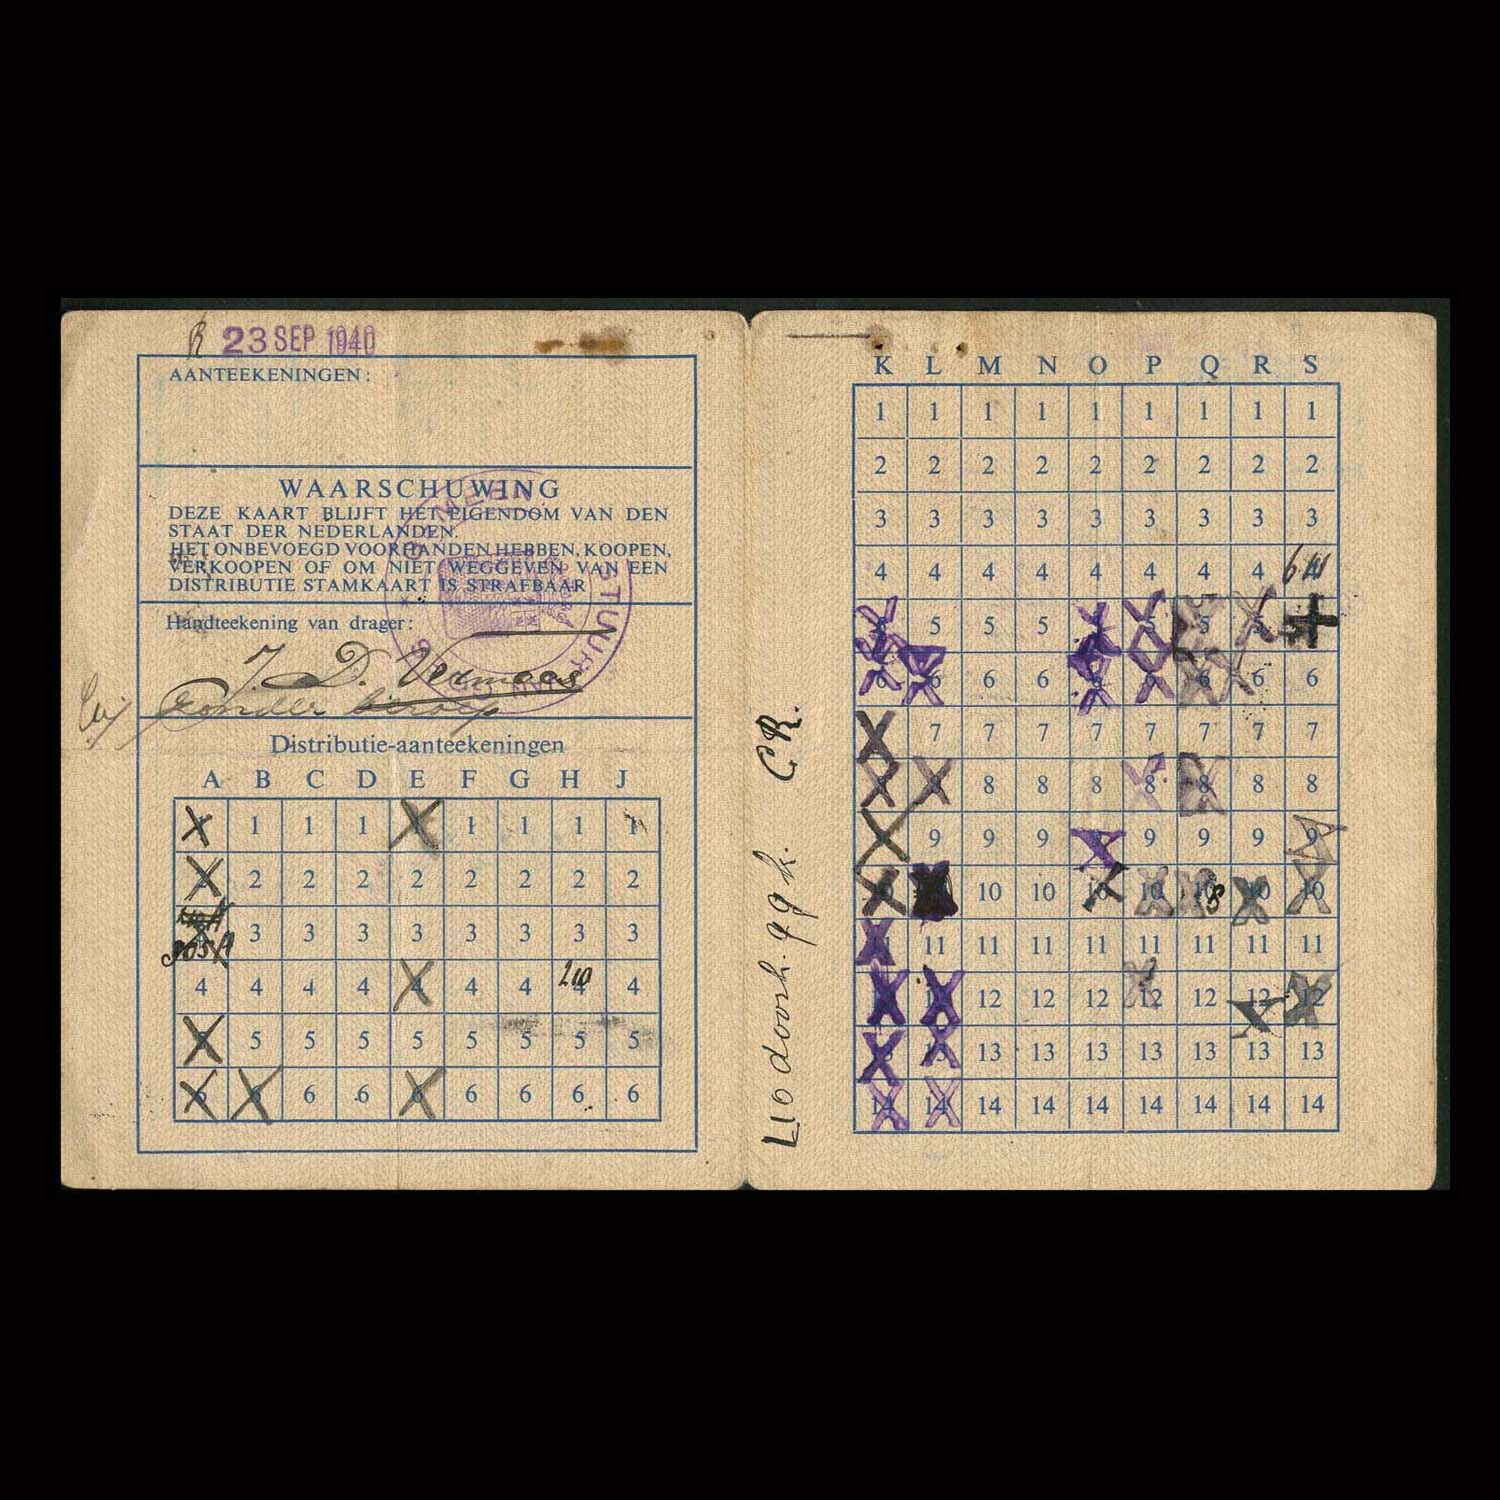 23 SEP 1940
AANTEEKENINGEN:
WAARSCHUWING
DEZE KAART BLIJFT HET EIGENDOM VAN DEN
STAAT DER NEDERLANDEN.
HET ONBEVOEGD VOORHANDEN HEBBEN, KOOPEN,
VERKOOPEN OF OM NIET WEGGEVEN VAN EEN
DISTRIBUTIE STAMKAART IS STRAFBAAR
Handteekening van drager:
J. D. Vermaas
zonder
Distributie-aanteekeningen
A B C D E F G H J
1 1 1 1 1 1 1 1 1
2 2 2 2 2 2 2 2 2
3 3 3 3 3 3 3 3
4 4 4 4 4 4 4 4 4
5 5 5 5 5 5 5 5
6 6 6 6 6 6 6 6 6
K L M N O P Q R S
1 1 1 1 1 1 1 1 1
2 2 2 2 2 2 2 2 2
3 3 3 3 3 3 3 3 3
4 4 4 4 4 4 4 4 4
5 5 5 5 5 5 5
6 6 6 6 6 6 6 6
7 7 7 7 7 7 7 7
8 8 8 8 8 8 8 8
9 9 9 9 9 9 9 9
10 10 10 10 10 10 10
11 11 11 11 11 11 11 11 11
12 12 12 12 12 12 12
13 13 13 13 13 13 13 13 13
14 14 14 14 14 14 14 14 14